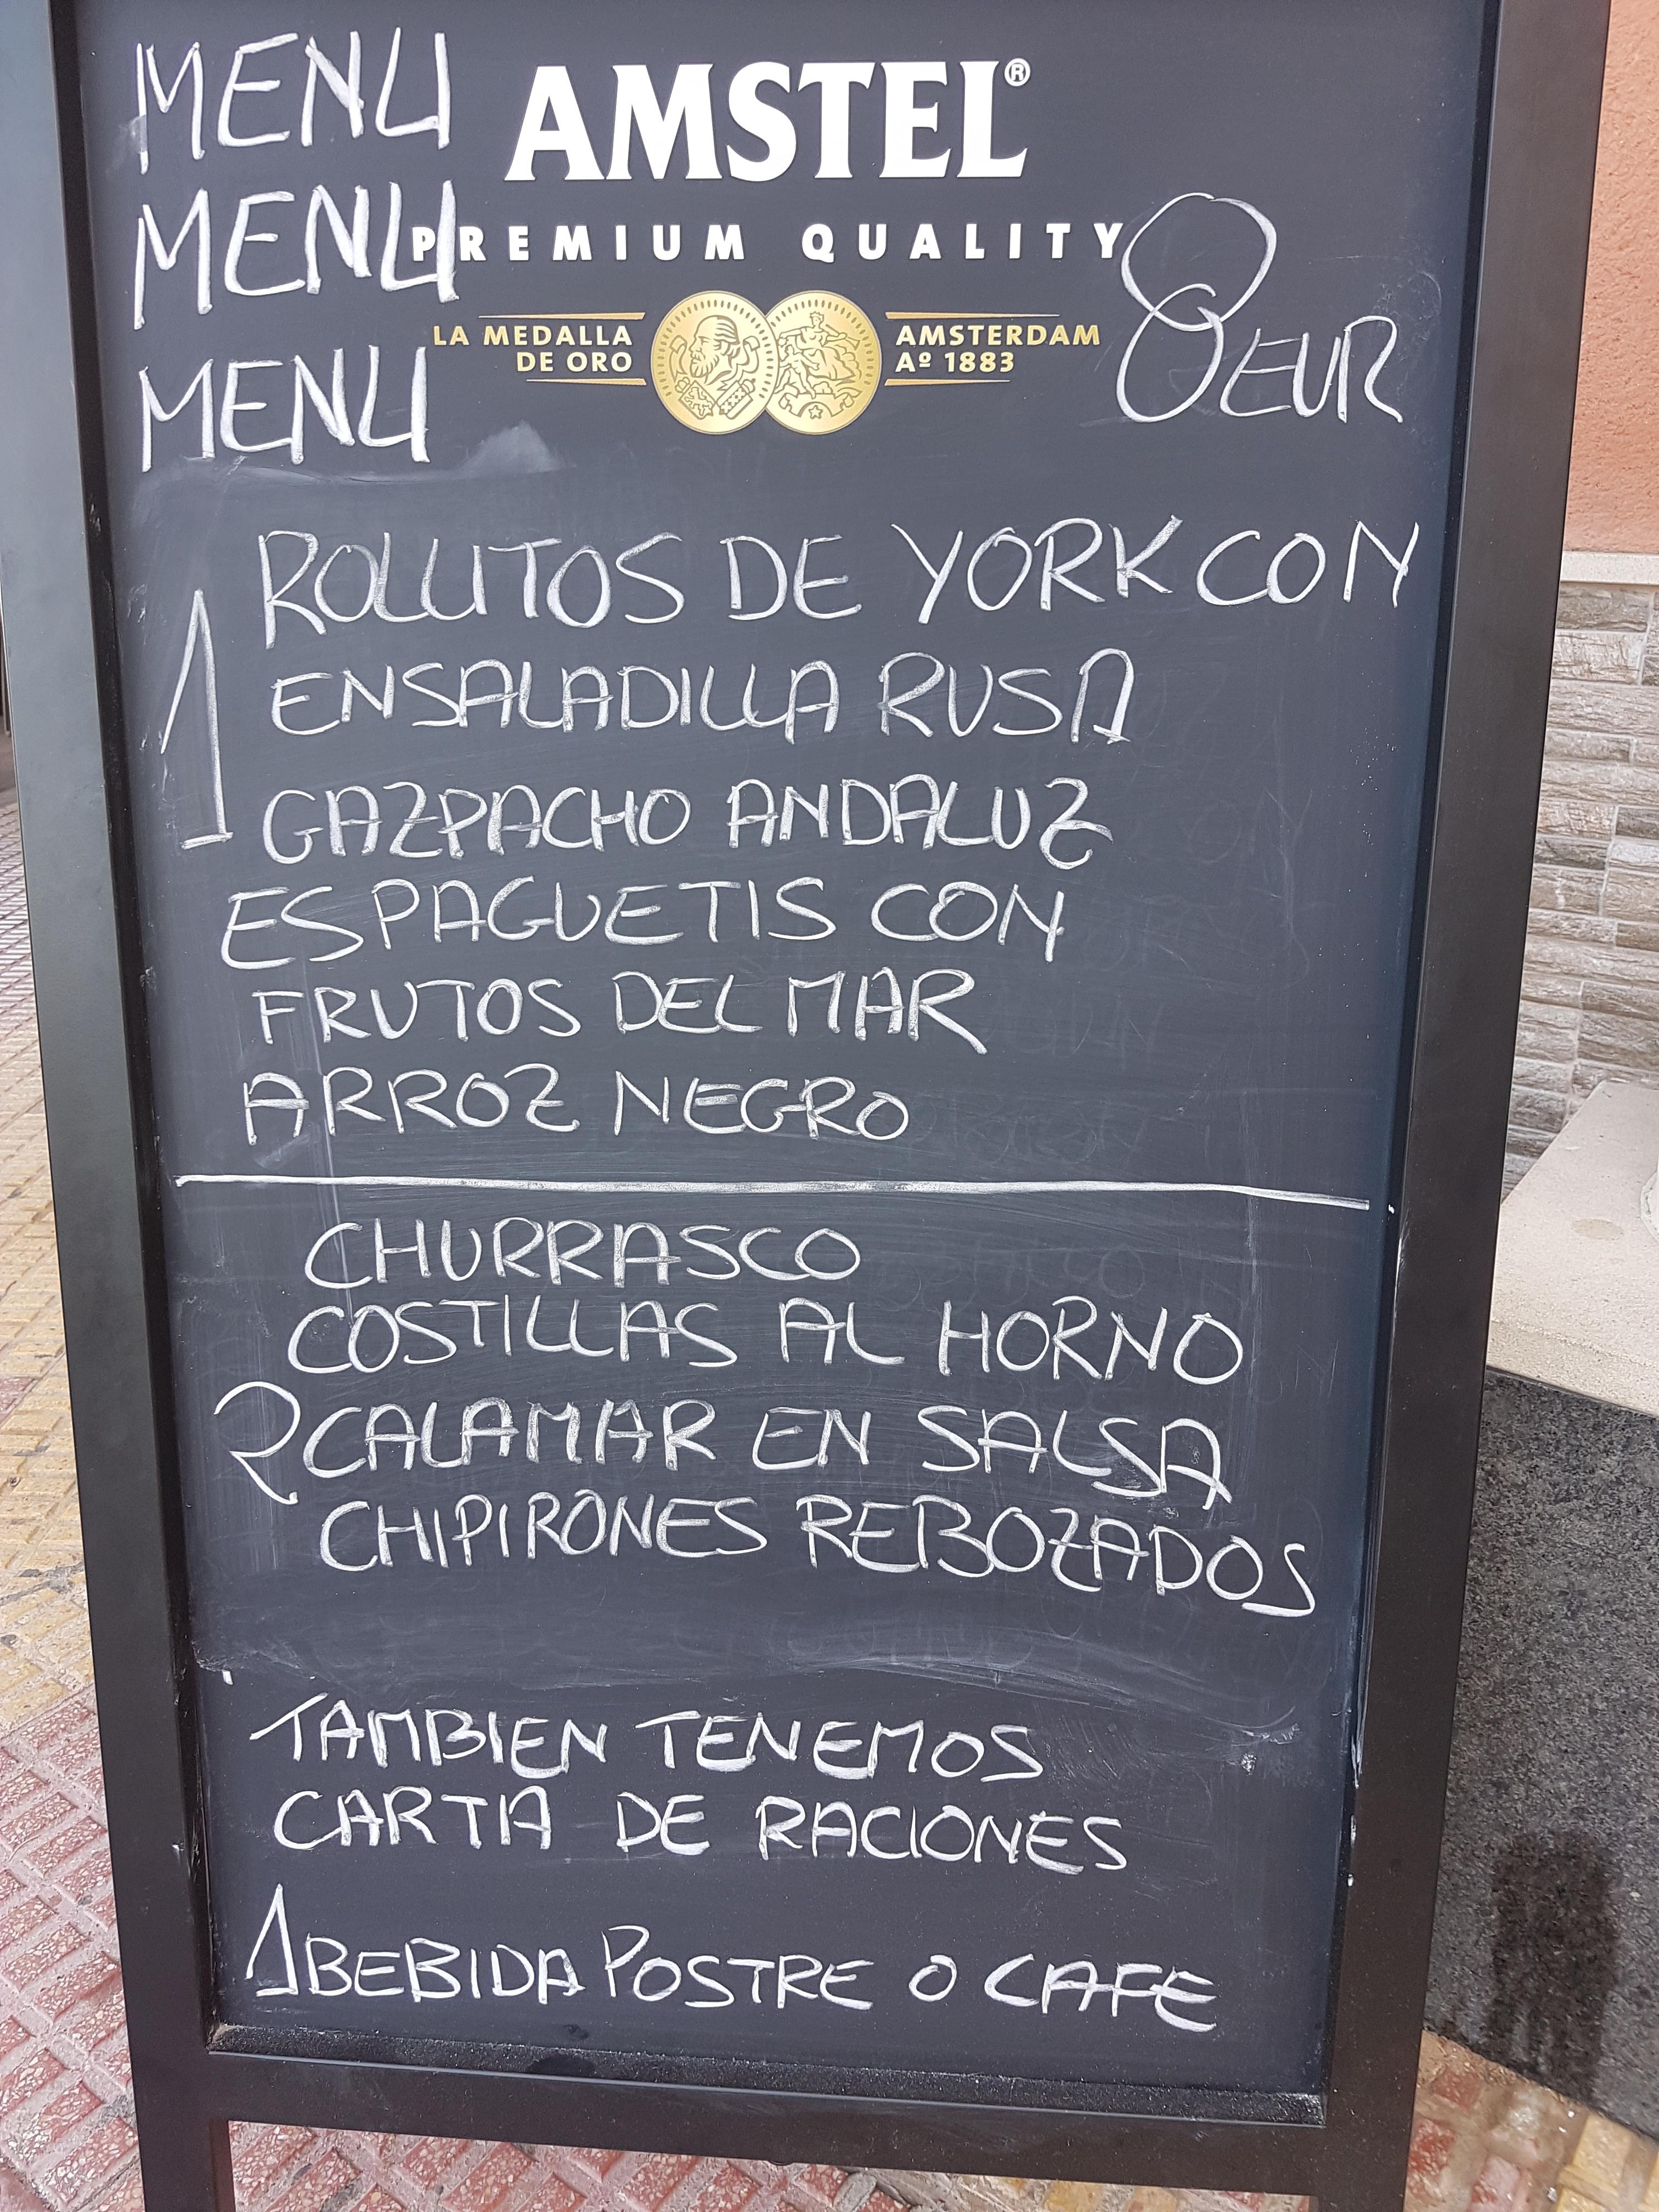 MENU
AMSTEL®
MENU
PREMIUM QUALITY
8 EUR
LA MEDALLA
DE ORO
AMSTERDAM
Aº 1883
MENU
1
ROLLITOS DE YORK CON
ENSALADILLA RUSA
GAZPACHO ANDALUZ
ESPAGUETIS CON
FRUTOS DEL MAR
ARROZ NEGRO
CHURRASCO
COSTILLAS AL HORNO
2 CALAMAR EN SALSA
CHIPIRONES REBOZADOS
TAMBIEN TENEMOS
CARTA DE RACIONES
1 BEBIDA POSTRE O CAFE